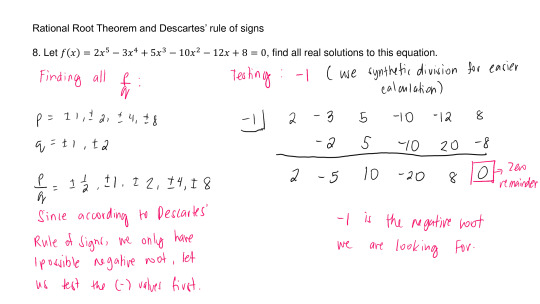 Rational Root Theorem and Descartes' rule of signs
8. Let f(x) = 2x⁵ − 3x⁴ + 5x³ − 10x² − 12x + 8 = 0, find all real solutions to this equation.
Finding all p/q :
p = ±1, ±2, ±4, ±8
q = ±1, ±2
p/q = ±1/2, ±1, ±2, ±4, ±8
Since according to Descartes'
Rule of Signs, we only have
1 possible negative root, let
us test the (-) values first.
Testing : -1 (use synthetic division for easier
calculation)
-1 2 -3 5 -10 -12 8
-2 5 -10 20 -8
2 -5 10 -20 8 0 → zero
remainder
-1 is the negative root
we are looking for.